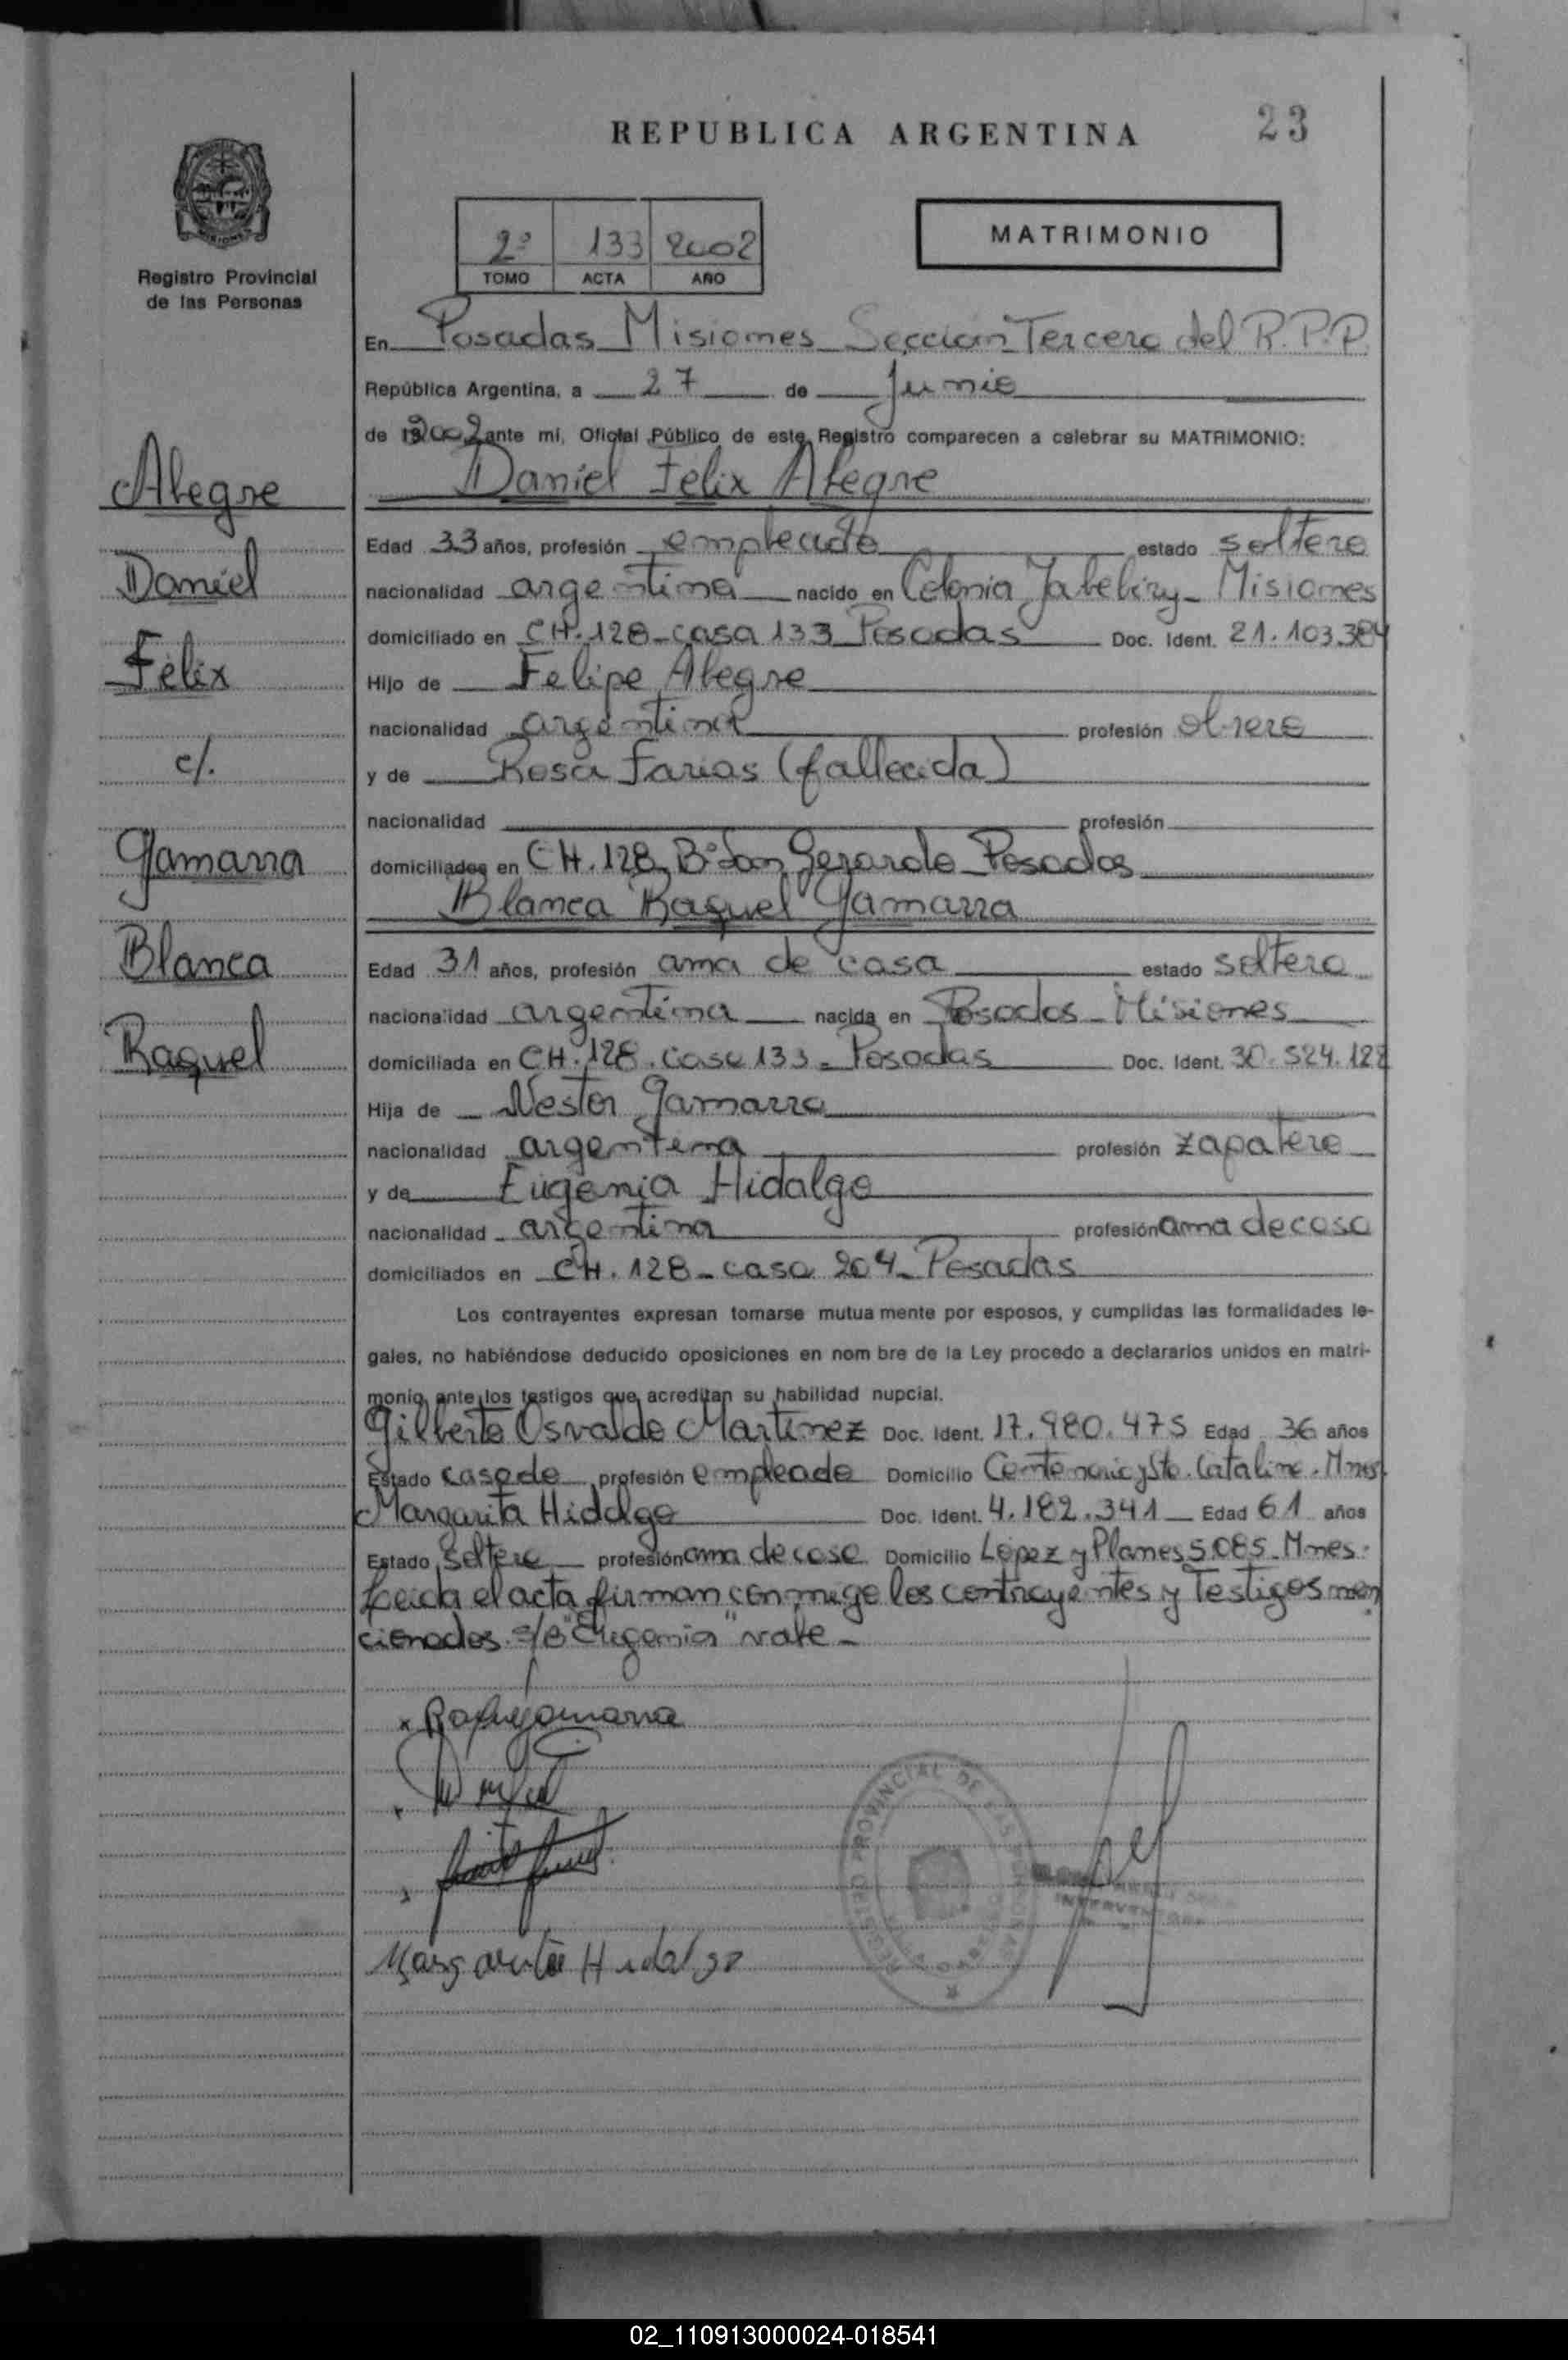 REPUBLICA ARGENTINA
23
2º 133 2002
TOMO ACTA AÑO
MATRIMONIO
Registro Provincial
de las Personas
En Posadas Misiones Sección Tercera del R.P.P.
República Argentina, a 27 de Junio
de 2002 ante mí, Oficial Público de este Registro comparecen a celebrar su MATRIMONIO:
Daniel Felix Alegre
Edad 33 años, profesión empleado estado soltero
nacionalidad argentina nacido en Colonia Yabebiry - Misiones
domiciliado en CH. 128 - casa 133 Posadas Doc. Ident. 21.103.384
Hijo de Felipe Alegre
nacionalidad argentina profesión obrero
y de Rosa Farias (fallecida)
nacionalidad profesión
domiciliados en CH. 128, Bº San Gerardo Posadas
Blanca Raquel Gamarra
Edad 31 años, profesión ama de casa estado soltera
nacionalidad argentina nacida en Posadas - Misiones
domiciliada en CH. 128. casa 133 - Posadas Doc. Ident. 30.524.122
Hija de Nestor Gamarra
nacionalidad argentina profesión zapatero
y de Eugenia Hidalgo
nacionalidad argentina profesión ama de casa
domiciliados en CH. 128 - casa 204 - Posadas
Los contrayentes expresan tomarse mutua mente por esposos, y cumplidas las formalidades le-
gales, no habiéndose deducido oposiciones en nom bre de la Ley procedo a declararlos unidos en matri-
monio ante los testigos que acreditan su habilidad nupcial.
Gilberto Osvaldo Martinez Doc. Ident. 17.980.475 Edad 36 años
Estado casado profesión empleado Domicilio Centenario y Sta. Catalina. Mnes.
Margarita Hidalgo Doc. Ident. 4.182.341 Edad 61 años
Estado soltera profesión ama de casa Domicilio Lopez y Planes 5.085 - Mnes.
Leida el acta firman conmigo los contrayentes y Testigos men
cionados. S/B "Eugenia" vale -
Margarita Hidalgo
Alegre
Daniel
Felix
c/.
Gamarra
Blanca
Raquel
REGISTRO PROVINCIAL DE LAS PERSONAS
02_110913000024-018541